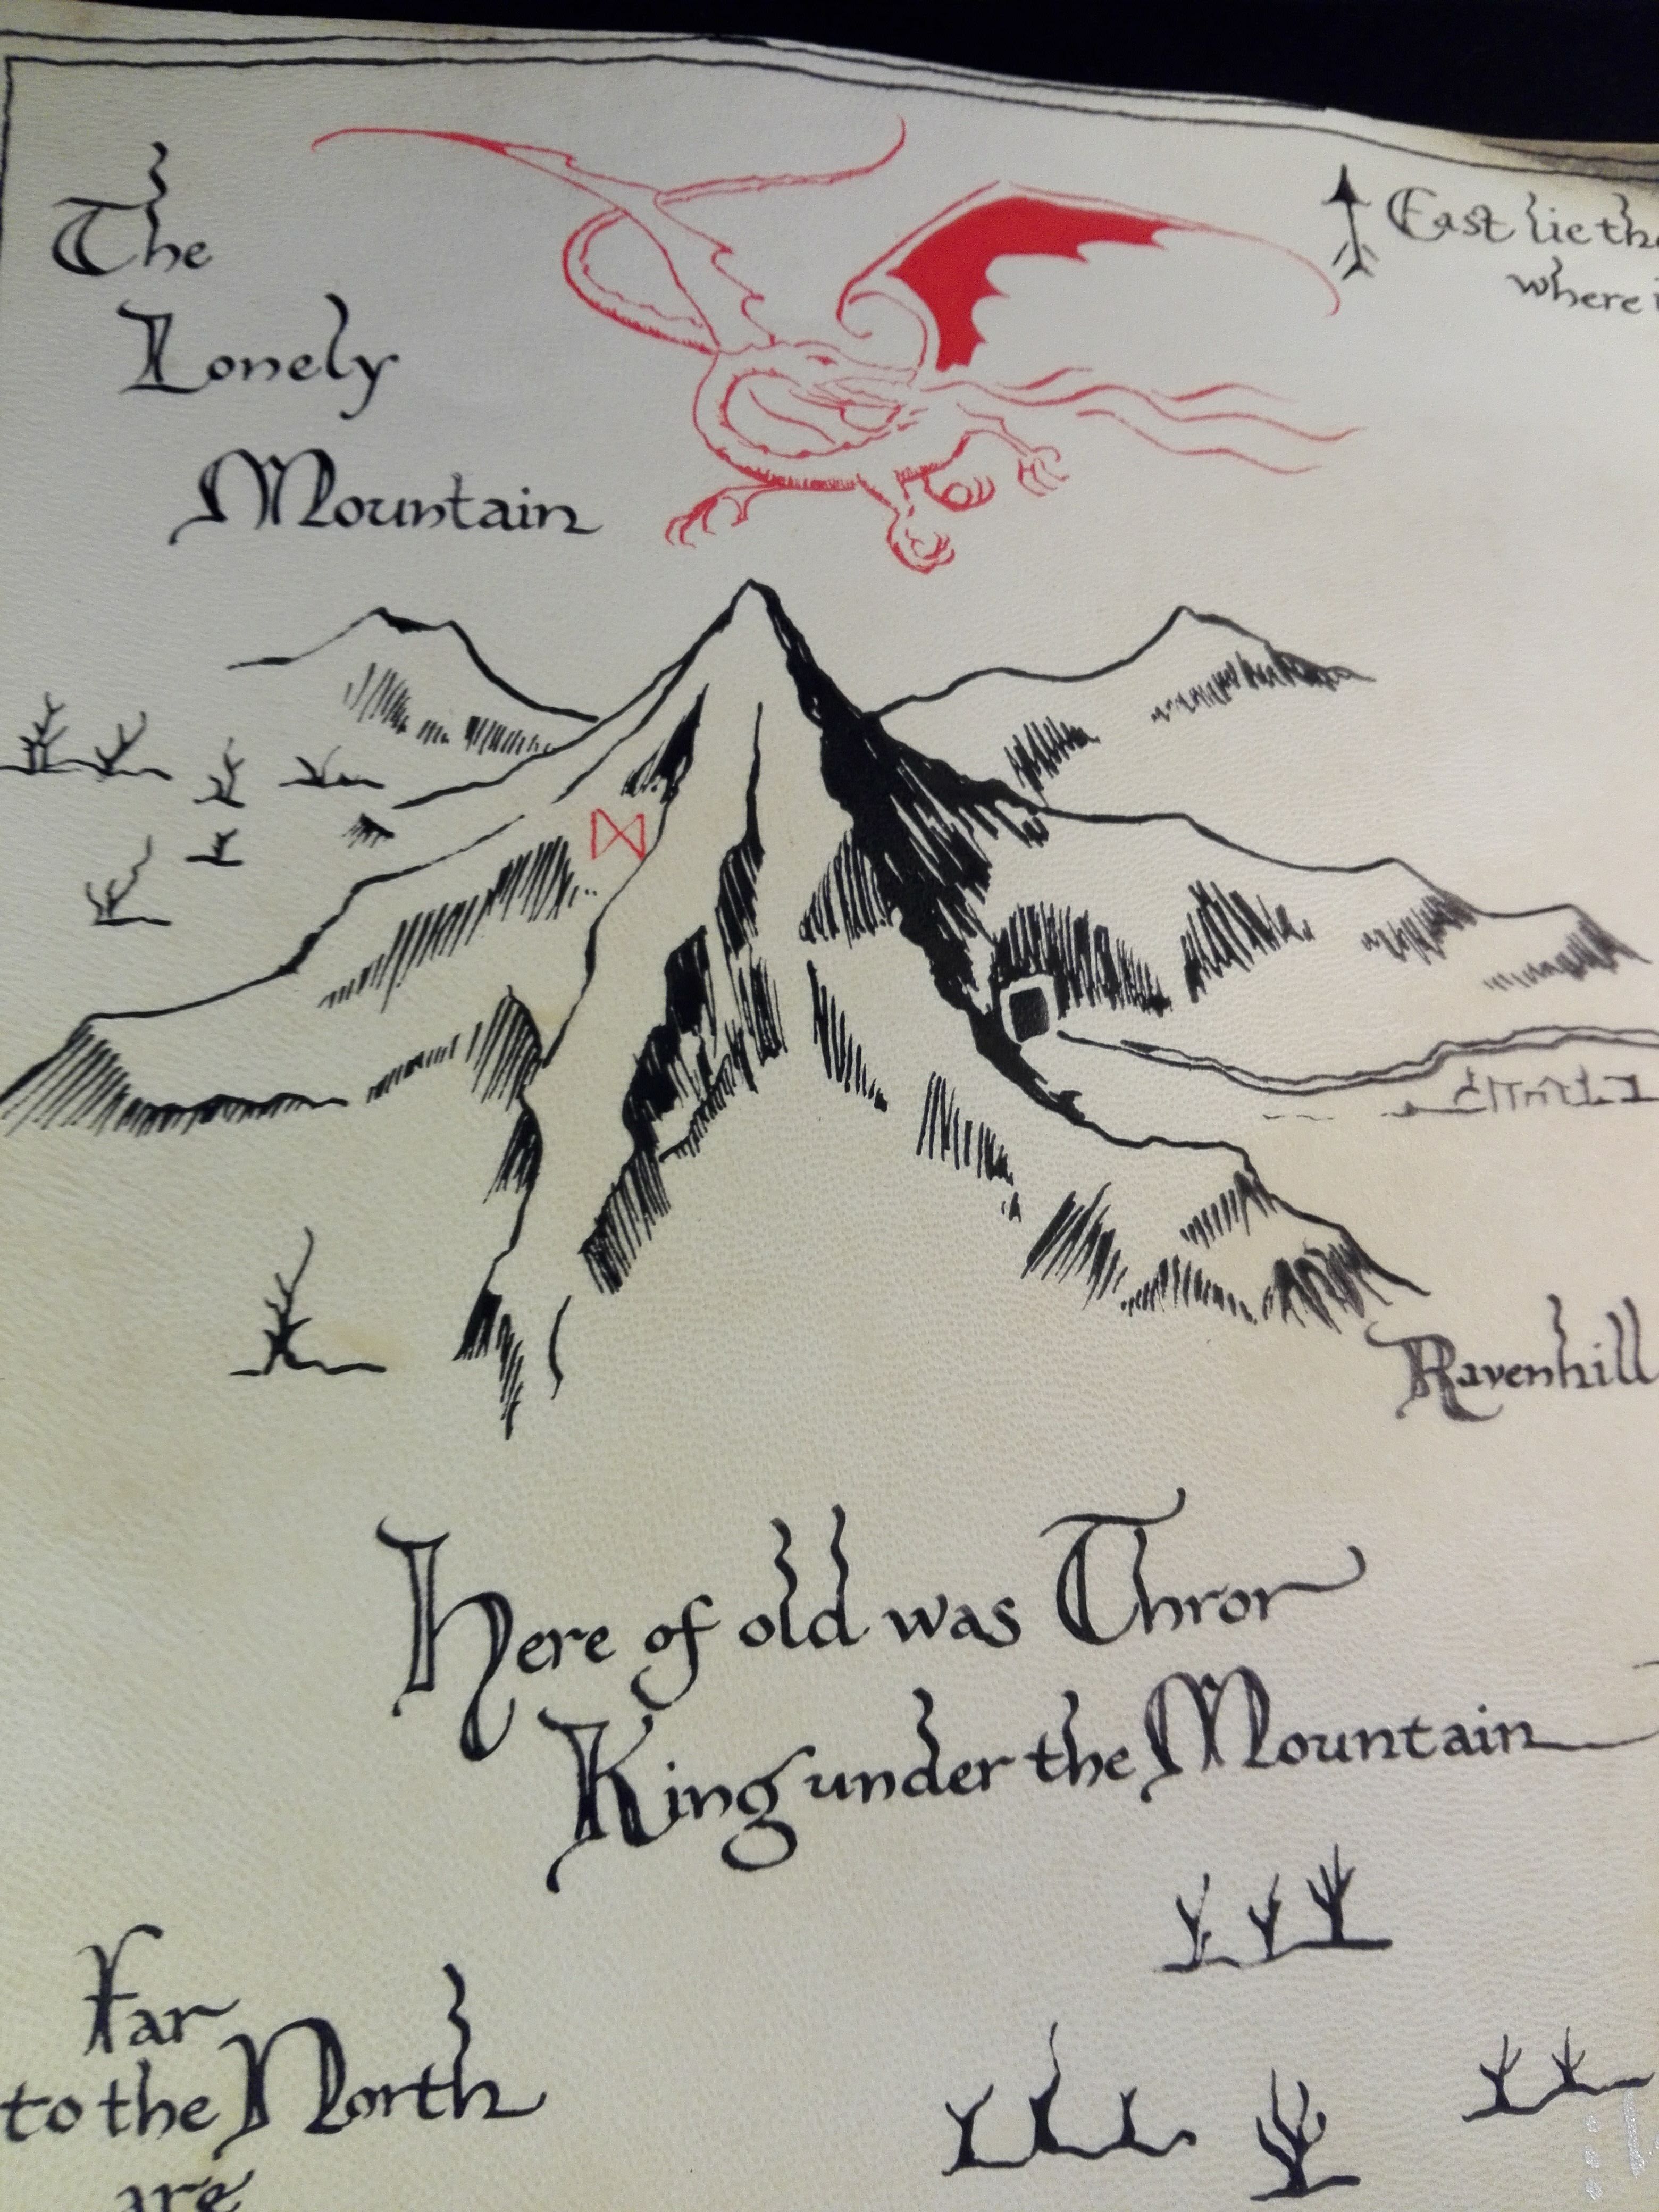 The
Lonely
Mountain
East lie the
where
ᛞ
Ravenhill
Here of old was Thror
King under the Mountain
Far
to the North
are